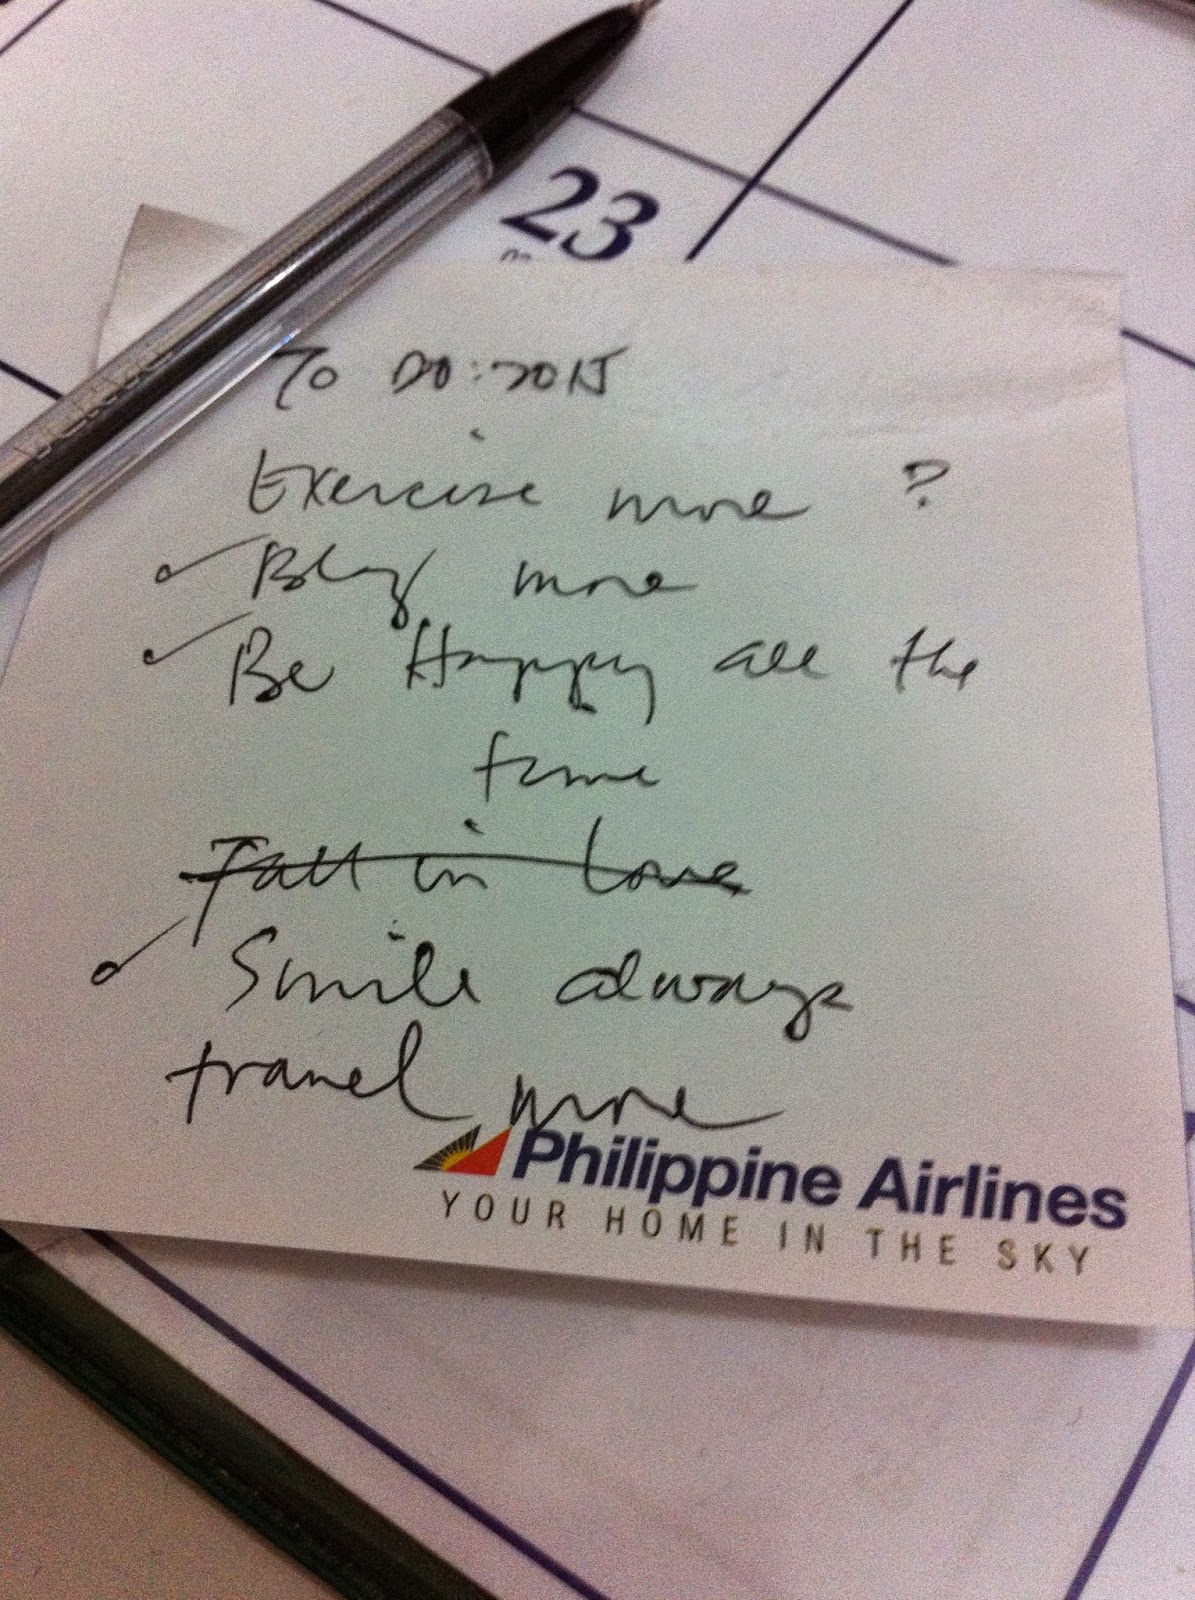 23
To DO: 2015
Exercise more ?
Blog more
Be Happy all the
time
Fall in love
Smile always
travel more
Philippine Airlines
YOUR HOME IN THE SKY